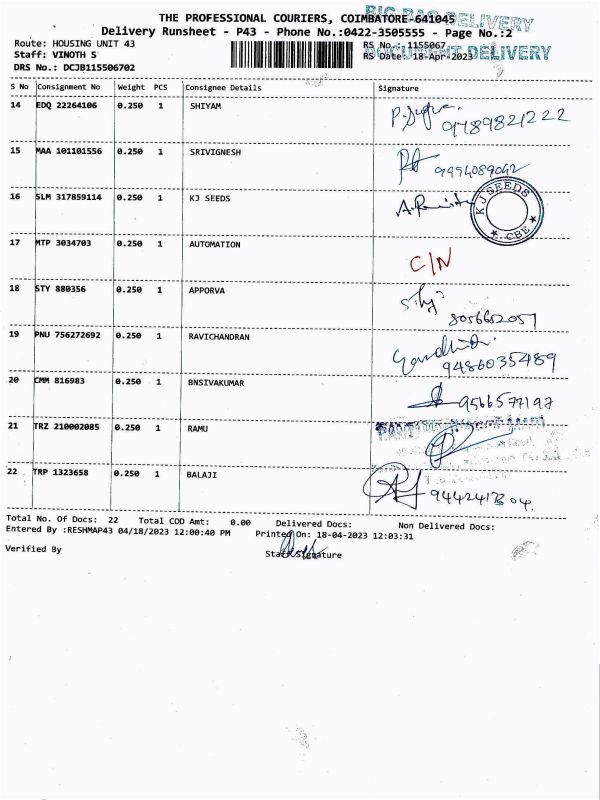 THE PROFESSIONAL COURIERS, COIMBATORE-641045
BIG BAG DELIVERY
Delivery Runsheet - P43 - Phone No.:0422-3505555 - Page No.:2
Route: HOUSING UNIT 43
RS No.: 1155067
Staff: VINOTH S
DELIVERY
DRS No.: DCJB115506702
RS Date: 18-Apr-2023
S No Consignment No Weight PCS Consignee Details Signature
14 EDQ 22264106 0.250 1 SHIYAM
9789821222
15 MAA 101101556 0.250 1 SRIVIGNESH
9494089042
16 SLM 317859114 0.250 1 KJ SEEDS
KJ SEEDS
★ CBE ★
17 MTP 3034703 0.250 1 AUTOMATION
C/N
18 STY 880356 0.250 1 APPORVA
8056652057
19 PNU 756272692 0.250 1 RAVICHANDRAN
9486035489
20 CMM 816983 0.250 1 BNSIVAKUMAR
9566577197
21 TRZ 210002085 0.250 1 RAMU
22 TRP 1323658 0.250 1 BALAJI
Total No. Of Docs: 22 Total COD Amt: 0.00 Delivered Docs: Non Delivered Docs:
Entered By :RESHMAP43 04/18/2023 12:00:40 PM Printed On: 18-04-2023 12:03:31
Verified By Staff Signature